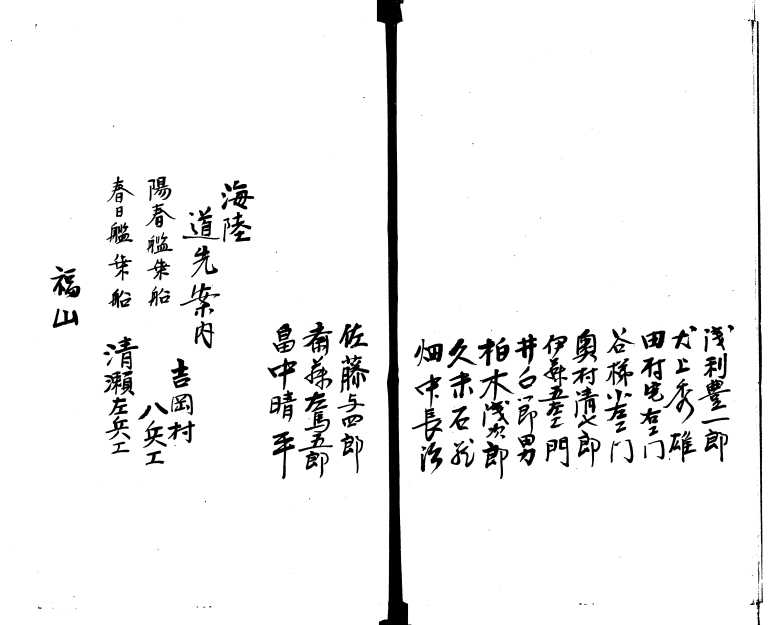 浅利豊一郎
犬上秀雄
田村宅右エ門
谷梯小左エ門
奥村清七郎
伊藤五左エ門
井口節男
柏木浅次郎
久末石蔵
畑中長治
佐藤与四郎
斎藤左馬五郎
畠中晴平
海陸
道先案内
陽春艦乗船 吉岡村 八兵エ
春日艦乗船 清瀬左兵エ
福山